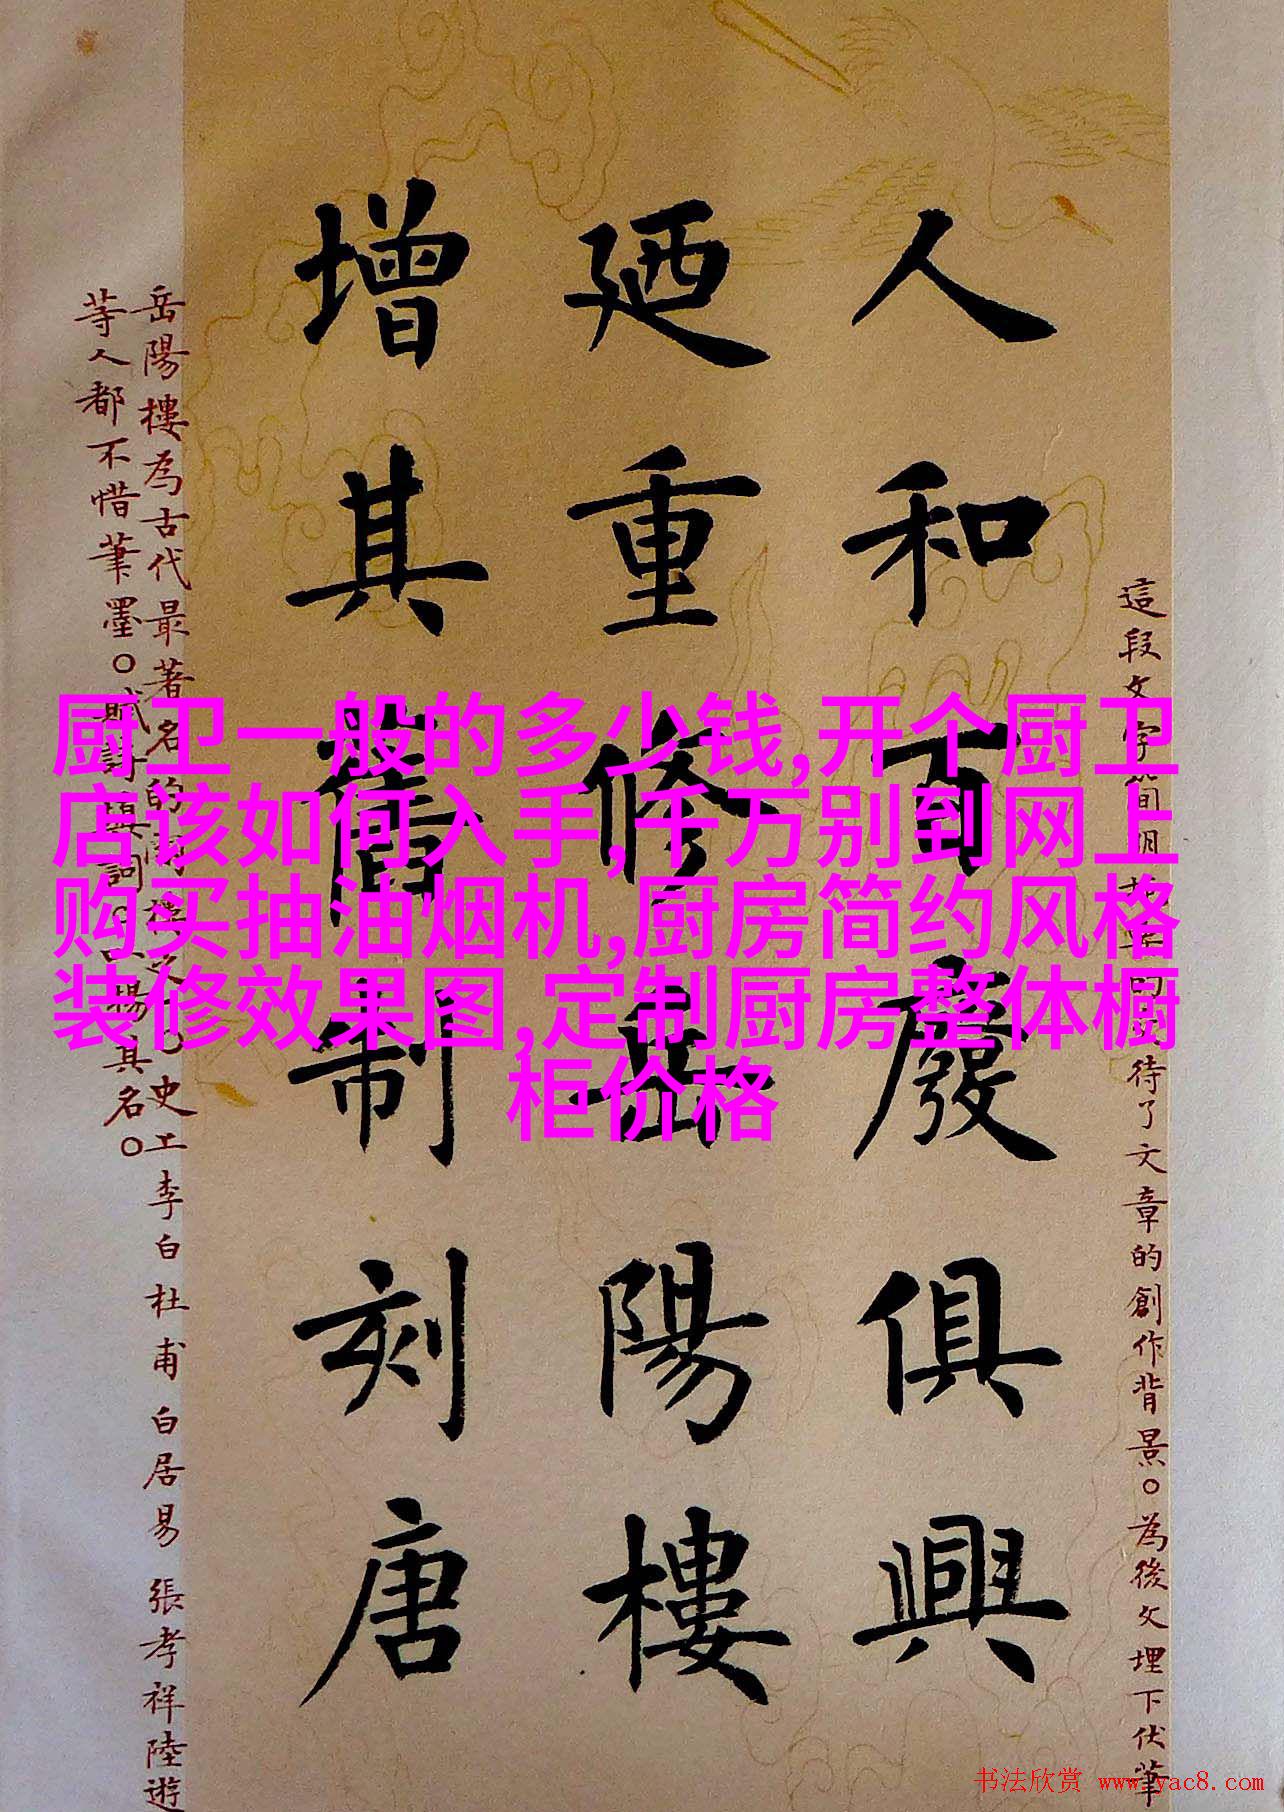 人和百廢俱興
廼重修岳陽樓
增其舊制刻唐
這段文字簡明
待了文章的創作背景。為後文埋下伏筆
岳陽樓為古代最著名的
史上李白 杜甫 白居易 張孝祥陸遊
等人都不惜筆墨。賦詩填詞。以揚其名。
厨卫一般的多少钱,开个厨卫
店该如何入手,千万别到网上
购买抽油烟机,厨房简约风格
装修效果图,定制厨房整体橱
柜价格
书法欣赏 www.yac8.com